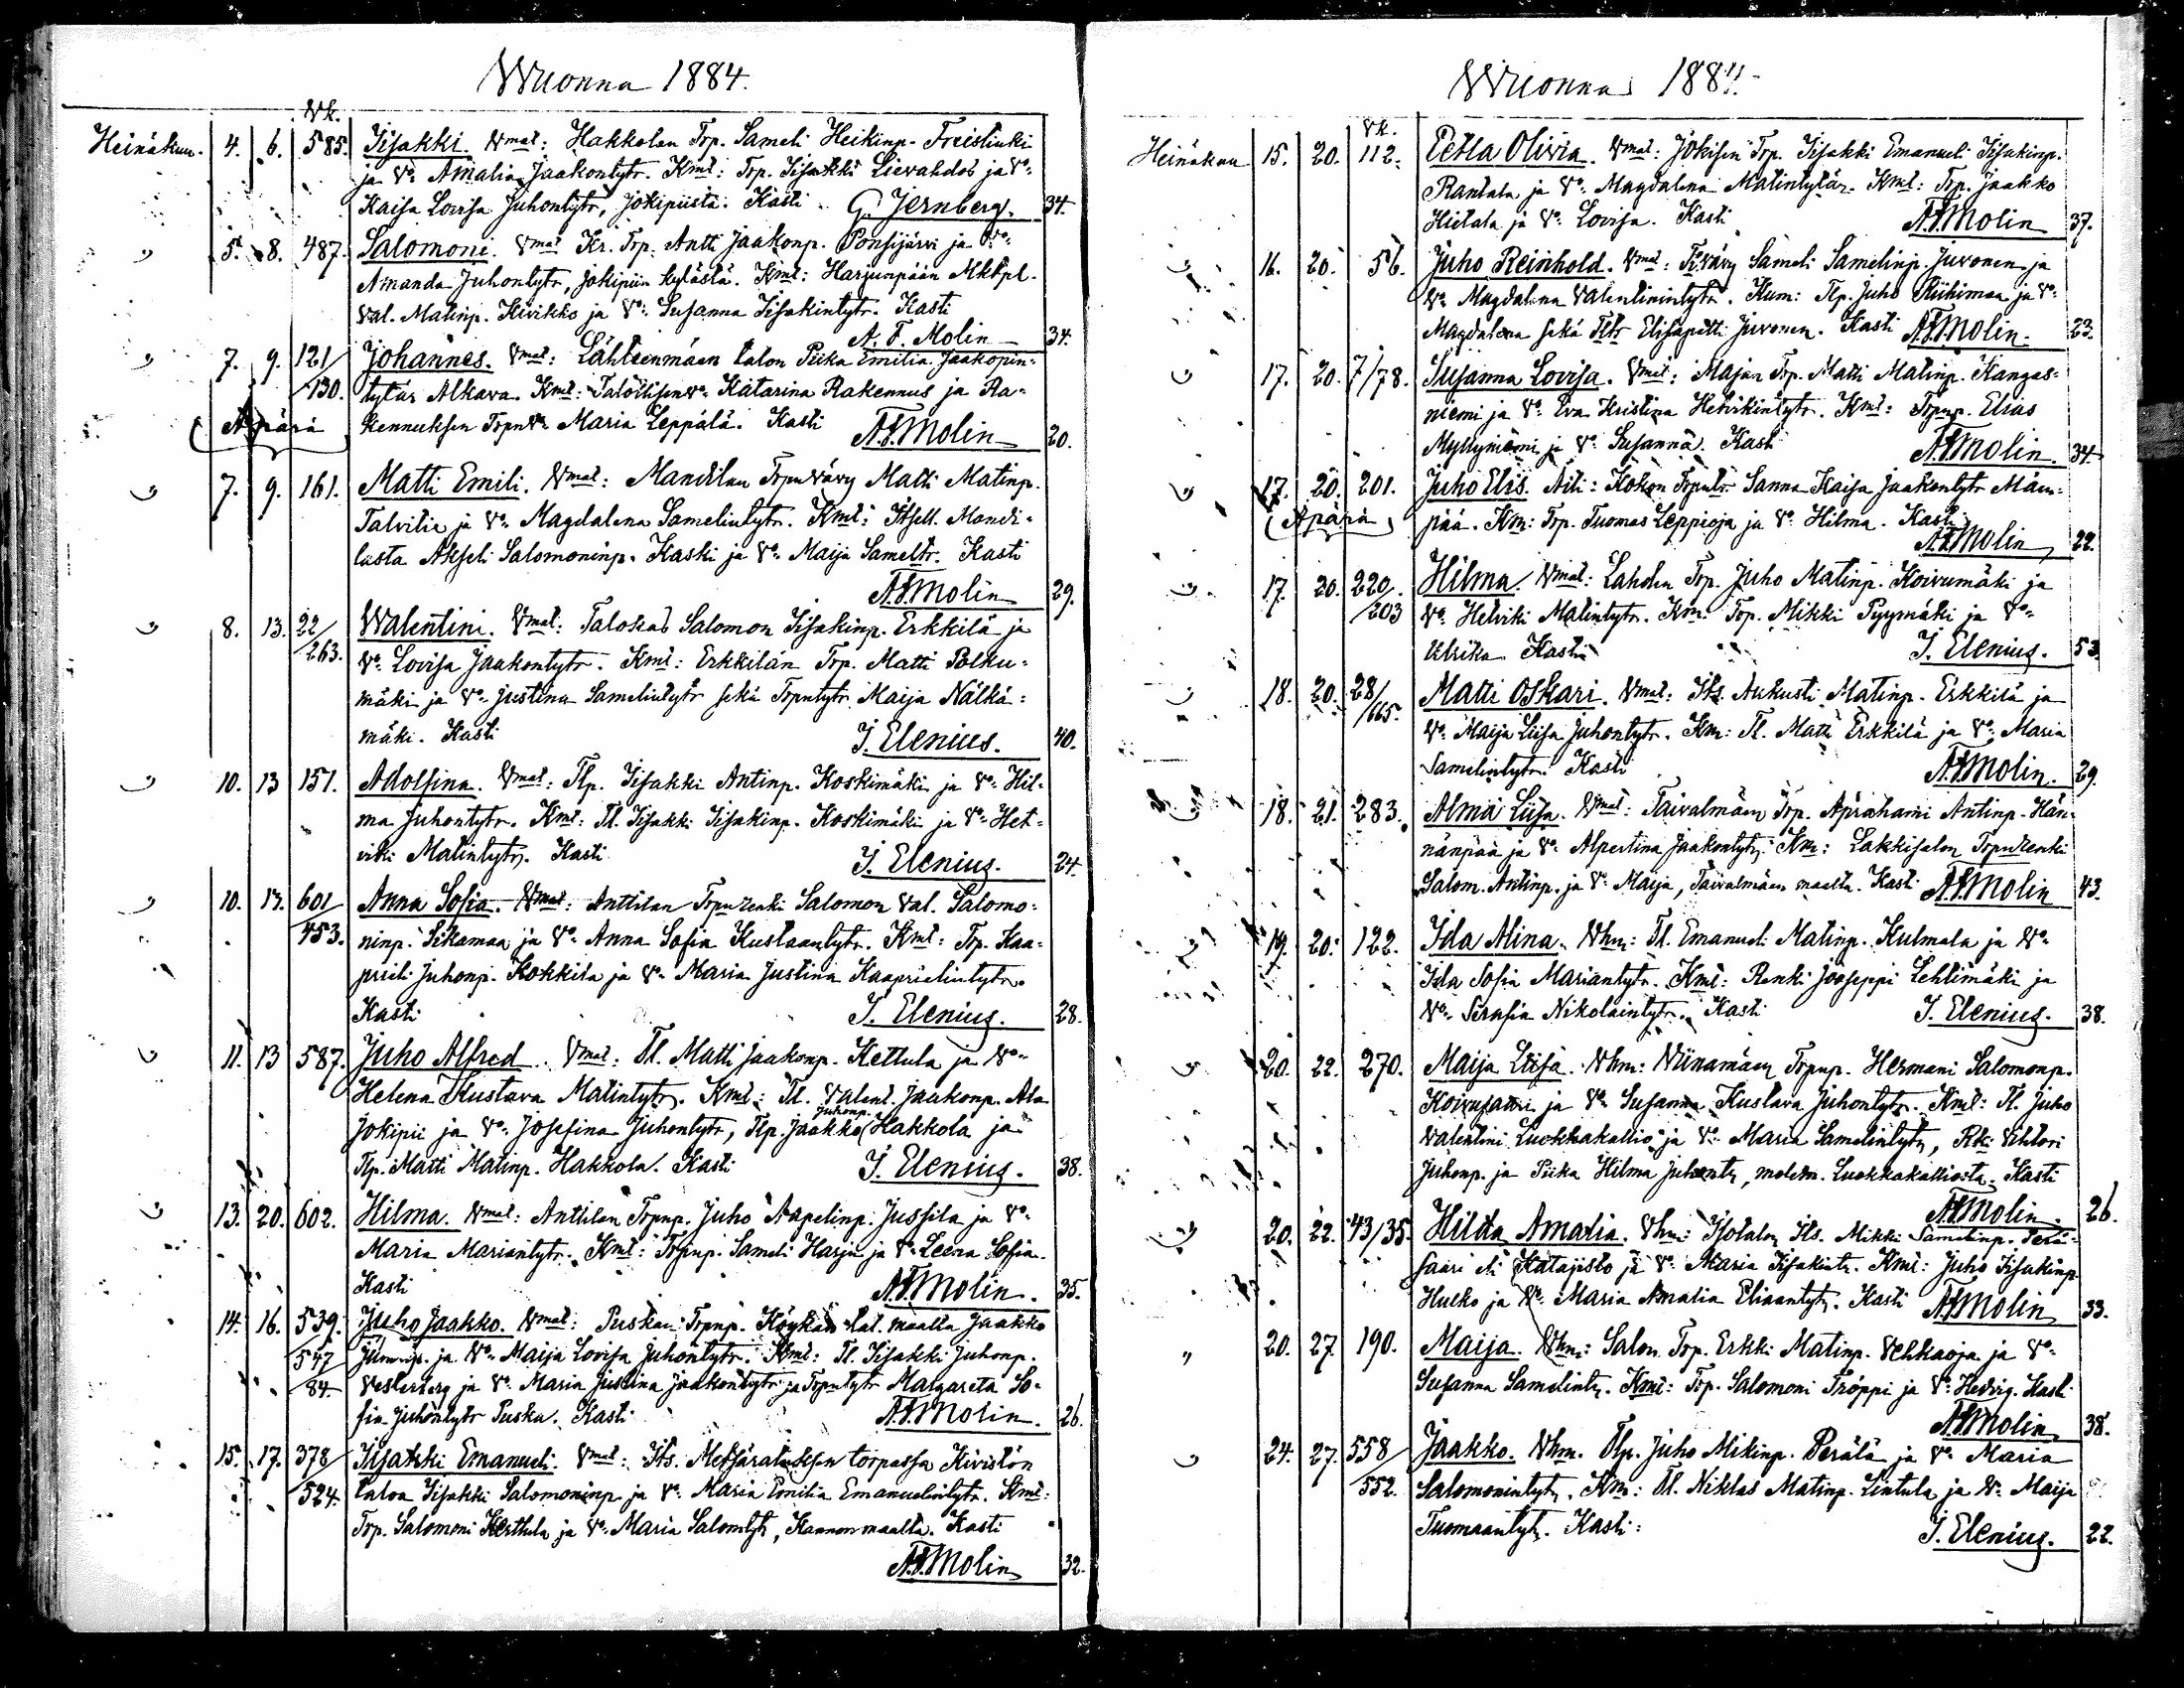 Wuonna 1884.
Vk.
Heinäkun. 4. 6. 585. Iisakki. Vmat: Hakkolan Trp. Sameli Heikinp. Freistinki
ja Vo: Amalia Jaakontytr. Kmt: Trp. Iisakki Lievahdes ja Vo:
Kaisa Lovisa Juhontytr, Jokipiistä. Kasti G. Jernberg. 34.
" 5. 8. 487. Salomoni. Vmat Kr. Trp. Antti Jaakonp. Ponsijärvi ja Vo:
Amanda Juhontytr, Jokipiin kylästä. Kmt: Harjunpään Mktpl.
Val. Matinp. Kivikko ja Vo: Susanna Iisakintytr. Kasti
A. F. Molin 34.
" 7. 9. 121/ Johannes. Vmat: Lähteenmäen talon Piika Emilia Jaakopin-
130. tytär Alkava. Kmt: Talollisen Vo: Katarina Rakennus ja Ra-
(Äpärä) kennuksen Trpn Vo: Maria Leppälä. Kasti A.F. Molin 20.
" 7. 9. 161. Matti Emili. Vmat: Mandilan Trpn vävy Matti Matinp.
Talvitie ja Vo: Magdalena Samelintytr. Kmt: Itsell. Mandi-
lasta Akseli Salomoninp. Kaski ja Vo: Maija Sameltr. Kasti
A.F. Molin 29.
" 8. 13. 22/ Walentini. Vmat: Talokas Salomon Iisakinp. Erkkilä ja
263. Vo: Lovisa Jaakontytr. Kmt: Erkkilän Trp. Matti Polku-
mäki ja Vo: Justina Samelintytr sekä Trpntytr Maija Nälkä-
mäki. Kasti J. Elenius. 40.
" 10. 13 151. Adolfina. Vmat: Tlp. Iisakki Antinp. Koskimäki ja Vo: Hil-
ma Juhontytr. Kmt: Tl. Iisakki Iisakinp. Koskimäki ja Vo: Het-
viki Matintytr. Kasti J. Elenius. 24.
" 10. 13. 601/ Anna Sofia. Vmat: Anttilan Trpn renki Salomon Val. Salomo-
453. ninp. Sikamaa ja Vo: Anna Sofia Kustaantytr. Kmt: Trp. Kaa-
prieli Juhonp. Kokkila ja Vo: Maria Justina Kaaprielintytr.
Kasti J. Elenius. 28.
" 11. 13 587. Juho Alfred. Vmat: Tl. Matti Jaakonp. Kettula ja Vo:
Helena Kustava Matintytr. Kmt: Tl. Valent. Jaakonp. Ala
Jokipii ja Vo: Josefina Juhontytr, Tlp. Jaakko Juhonp. Hakkola ja
Tlp. Matti Matinp. Hakkola. Kasti J. Elenius. 38.
" 13. 20. 602. Hilma. Vmat: Anttilan Trpnp. Juho Aapelinp. Jussila ja Vo:
Maria Mariantytr. Kmt: Trpnp. Sameli Harju ja Vo: Leena Sofia.
Kasti A.F. Molin. 35.
14. 16. 539. Juho Jaakko. Vmat: Puskan Trpnp. Köykän tal. maalta Jaakko
547 ja Vo: Maija Lovisa Juhontytr. Kmt: Tl. Iisakki Juhonp.
84. Vesterberg ja Vo: Maria Justina Jaakontytr ja Trpntytr Margareta So-
fia Juhontytr Puska. Kasti A.F. Molin. 26.
15. 17. 378/ Iisakki Emanueli. Vmat: Its. torpassa Kivistön
524. taloa Iisakki Salomoninp ja Vo: Maria Emilia Emanuelintytr. Kmt:
Trp. Salomoni Kerttula ja Vo: Maria Salomtytr, Kannon maalta. Kasti
A.F. Molin 32.
Wuonna 1884.
Vk.
Heinäkuu 15. 20. 112. Petta Olivia. Vmat: Jokisen Trp. Iisakki Emanueli Iisakinp.
Rantala ja Vo: Magdalena Matintytär. Kmt: Trp. Jaakko
Hietala ja Vo: Lovisa. Kasti A.F. Molin 37.
" 16. 20. 56. Juho Reinhold. Vmat: Tl. vävy Sameli Samelinp. Juvonen ja
Vo: Magdalena Valentinintytr. Kum: Tlp. Juho Riihimaa ja Vo:
Magdalena sekä Tltr Elisapetti Juvonen. Kasti A.F. Molin. 23.
" 17. 20. 7/78. Susanna Lovisa. Vmat: Majan Trp. Matti Matinp. Kangas-
niemi ja Vo: Eva Kristina Hetvikintytr. Kmt: Trpnp. Elias
Myllyniemi ja Vo: Susanna. Kasti A.F. Molin. 34.
" 17. 20. 201. Juho Elis. Äiti: Kokon Trpntr. Sanna Kaisa Jaakontytr Mäen-
(Äpärä) pää. Km: Trp. Tuomas Leppioja ja Vo: Hilma. Kasti
A.F. Molin 22.
" 17. 20. 220/ Hilma. Vmat: Lahden Trp. Juho Matinp. Koivumäki ja
203 Vo: Helviki Matintytr. Km: Trp. Mikki Pyymäki ja Vo:
Ulrika Kasti J. Elenius. 53
" 18. 20. 28/ Matti Oskari. Vmat: Its. Aukusti Matinp. Erkkilä ja
665. Vo: Maija Liisa Juhontytr. Km: Tl. Matti Erkkilä ja Vo: Maria
Samelintytr. Kasti A.F. Molin. 29.
" 18. 21. 283. Alma Liisa. Vmat: Taivalmäen Trp. Aprahami Antinp. Hän-
nänpää ja Vo: Alpertina Jaakontytr. Km: Lakkisalon Trpn renki
Salom. Antinp. ja Vo: Maija, Taivalmäen maalta. Kasti A.F. Molin 43.
" 19. 20. 122. Ida Mina. Vhm: Tl. Emanueli Matinp. Kulmala ja Vo:
Ida Sofia Mariantytr. Kmt: Renki Jooseppi Lehtimäki ja
Vo: Serafia Nikolaintytr. Kasti J. Elenius. 38.
" 20. 22. 270. Maija Liisa. Vhm: Viinamäen Trpnp. Hermani Salomonp.
Koivusaari ja Vo: Susanna Kustava Juhontytr. Kmt: Tl. Juho
Valentini Luokkakallio ja Vo: Maria Samelintytr, Rki Vihtori
Juhonp. ja Piika Hilma Juhontr, molem. Luokkakalliosta. Kasti
A.F. Molin 26.
" 20. 22. 43/35. Hilda Amalia. Vhm: Isotalon Its. Mikki Samelinp. Perä-
saari eli Katajisto ja Vo: Maria Iisakintr. Kmt: Juho Iisakinp.
Hulko ja Vo: Maria Amalia Eliaantytr. Kasti A.F. Molin 33.
" 20. 27. 190. Maija. Vhm: Salon Trp. Erkki Matinp. Vehkaoja ja Vo:
Susanna Samelintr. Kmt: Trp. Salomoni Tröppi ja Vo: Hedvig. Kasti
A.F. Molin 38.
" 24. 27. 558/ Jaakko. Vhm. Tlp. Juho Mikinp. Perälä ja Vo: Maria
552. Salomonintytr. Km: Tl. Niklas Matinp. Lintula ja Vo: Maija
Tuomaantytr. Kasti: J. Elenius. 22.